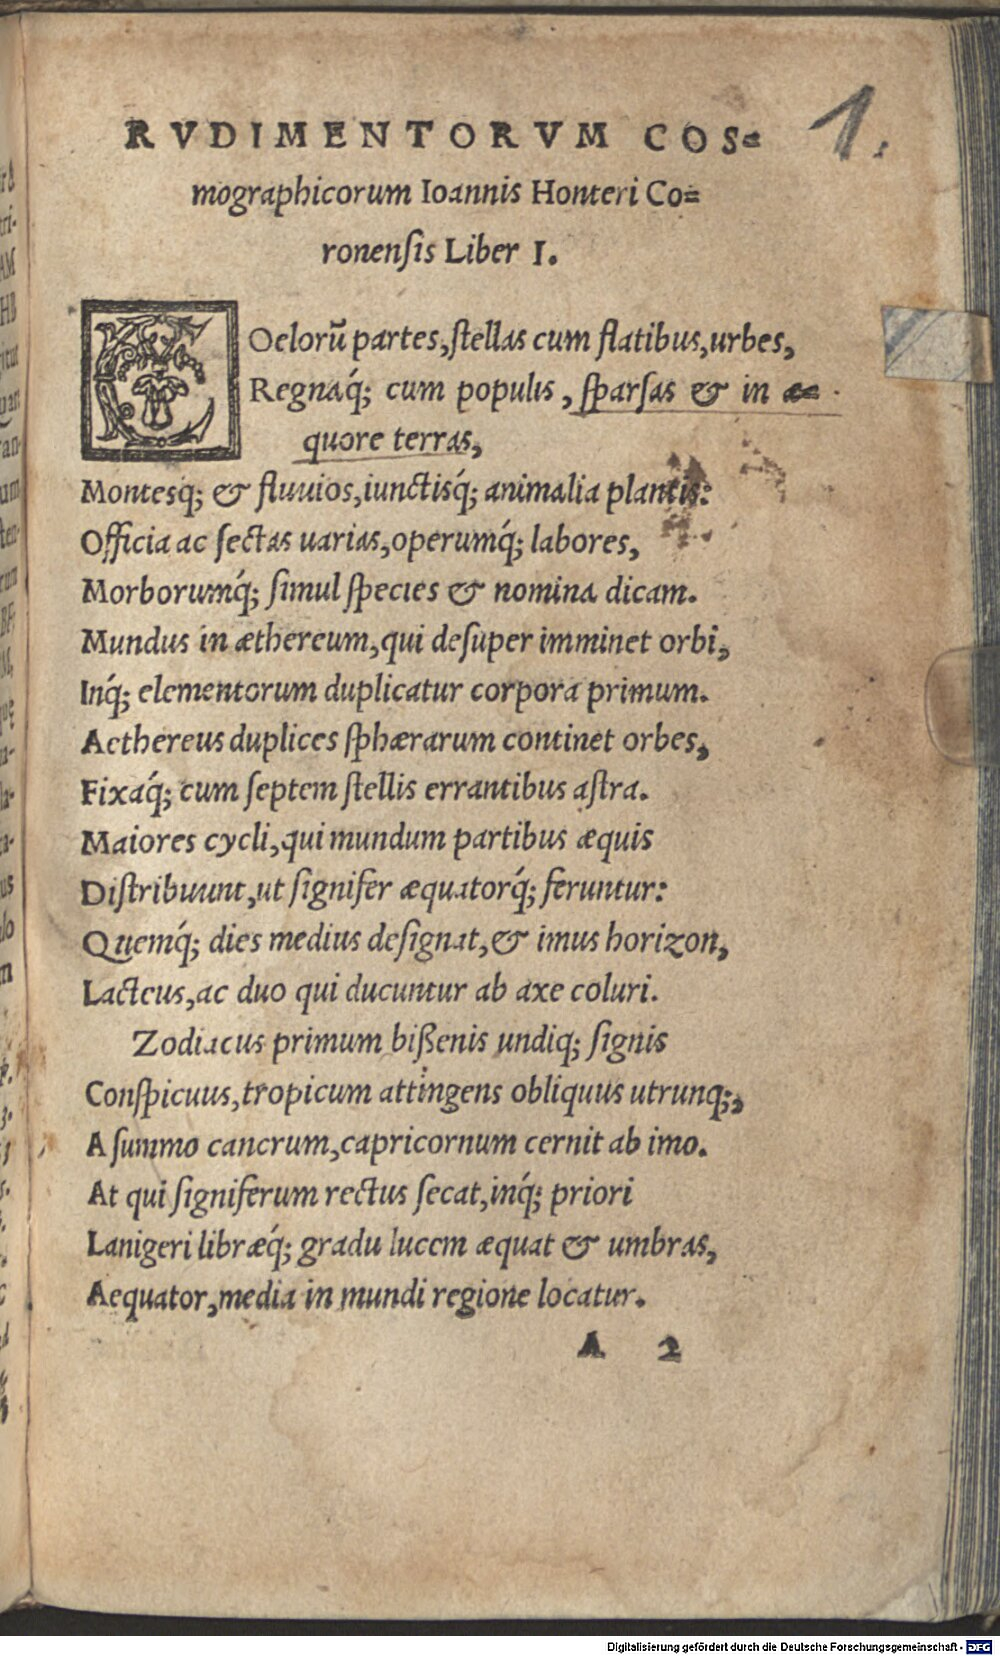 RVDIMENTORVM COS=
mographicorum Ioannis Honteri Co=
ronenſis Liber I.
1.
COelorū partes, ſtellas cum flatibus, urbes,
Regnaq́; cum populis, ſparſas & in æ=
quore terras,
Montesq́; & fluuios, iunctisq́; animalia plantis:
Officia ac ſectas uarias, operumq́; labores,
Morborumq́; ſimul ſpecies & nomina dicam.
Mundus in æthereum, qui deſuper imminet orbi,
Inq́; elementorum duplicatur corpora primum.
Aethereus duplices ſphærarum continet orbes,
Fixaq́; cum ſeptem ſtellis errantibus aſtra.
Maiores cycli, qui mundum partibus æquis
Diſtribuunt, ut ſignifer æquatorq́; feruntur:
Quemq́; dies medius deſignat, & imus horizon,
Lacteus, ac duo qui ducuntur ab axe coluri.
Zodiacus primum bißenis undiq; ſignis
Conſpicuus, tropicum attingens obliquus utrunq;,
A ſummo cancrum, capricornum cernit ab imo.
At qui ſigniferum rectus ſecat, inq́; priori
Lanigeri libræq́; gradu lucem æquat & umbras,
Aequator, media in mundi regione locatur.
A 2
Digitalisierung gefördert durch die Deutsche Forschungsgemeinschaft - DFG